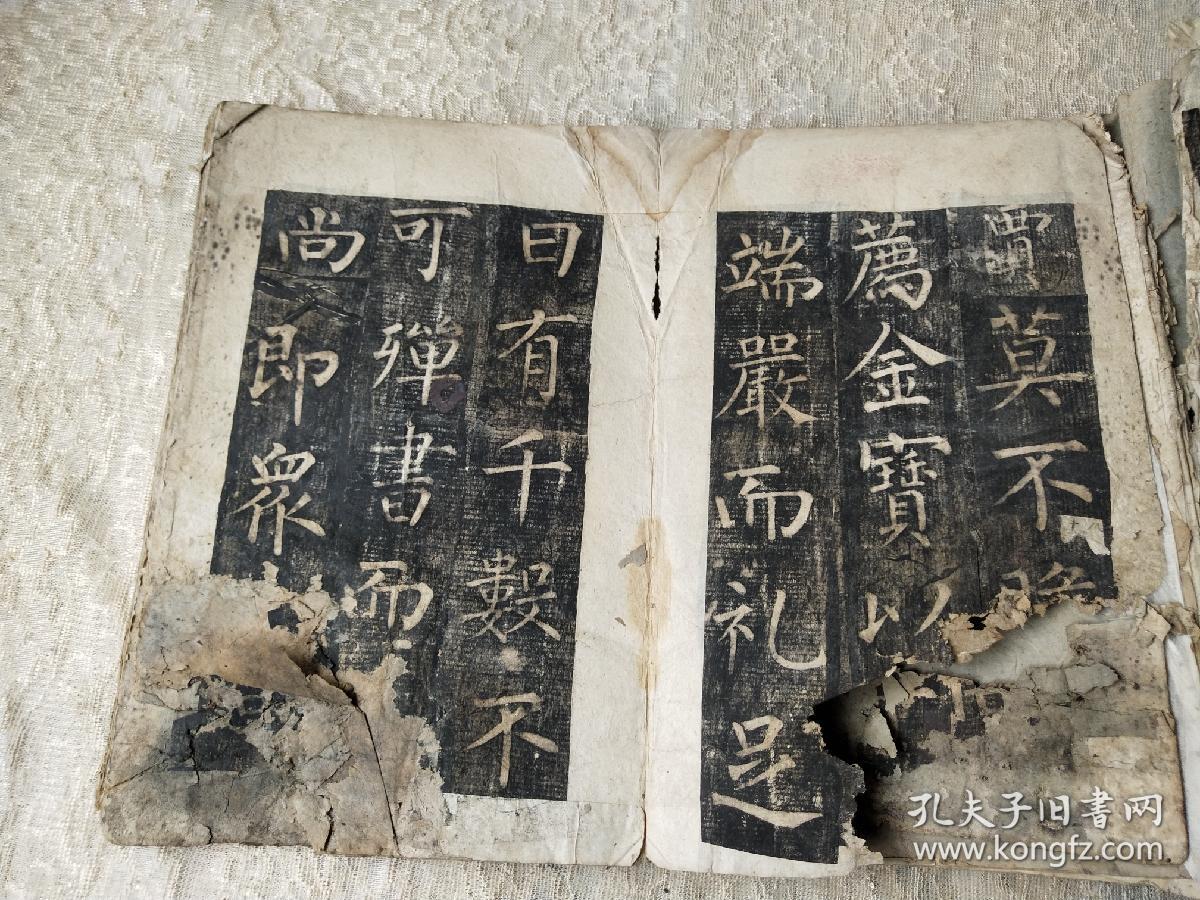 賈莫不
薦金寶以
端嚴而礼足
日有千數不
可殫書而
尚即衆
孔夫子旧書网
www.kongfz.com